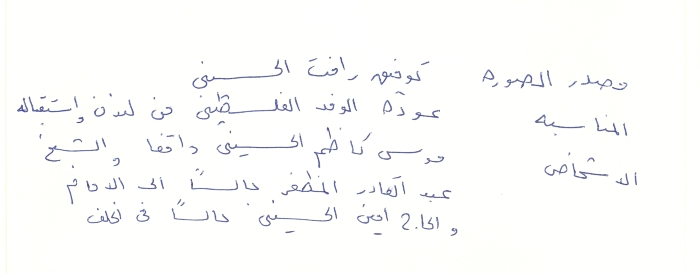 مصدر الصوره توفيق رأفت الحسيني
المناسبه عودة الوفد الفلسطيني من لندن واستقباله
الاشخاص موسى كاظم الحسيني واقفا والشيخ
عبد القادر المظفر جالساً الى الامام
والحاج امين الحسيني جالساً في الخلف